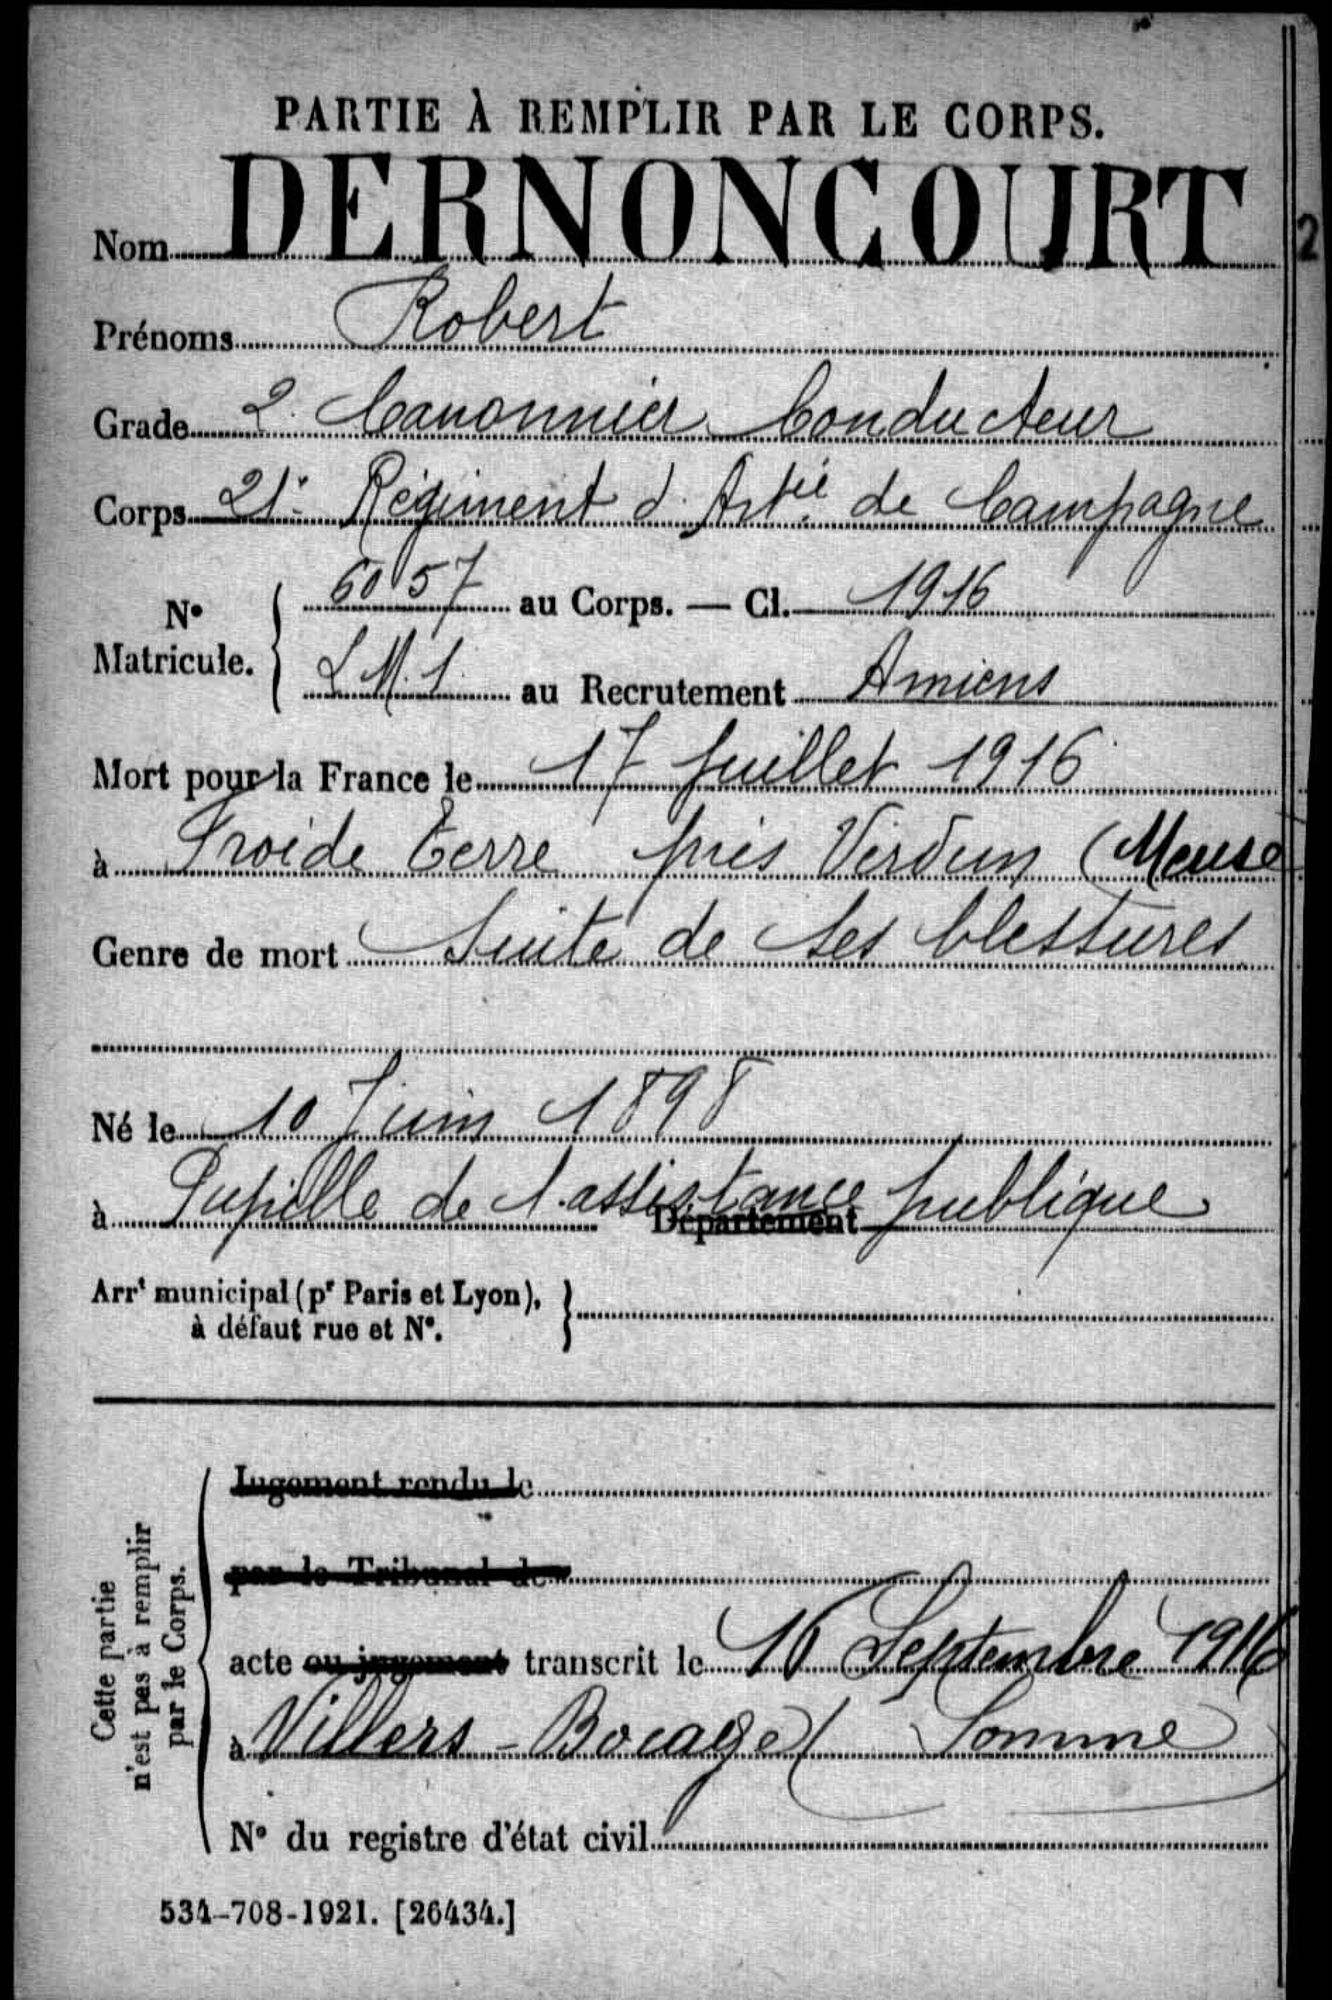 PARTIE À REMPLIR PAR LE CORPS.
Nom DERNONCOURT
2
Prénoms Robert
Grade 2. Canonnier Conducteur
Corps 21e Régiment d'Artie de Campagne
N° Matricule. 6057 au Corps. — Cl. 1916
L M. 1. au Recrutement Amiens
Mort pour la France le 17 Juillet 1916
à Froide Terre près Verdun (Meuse
Genre de mort Suite de ses blessures
Né le 10 Juin 1898
à Pupille de l'assistance publique
Département
Arrt municipal (pr Paris et Lyon),
à défaut rue et N°.
Cette partie
n'est pas à remplir
par le Corps.
Jugement rendu le
par le Tribunal de
acte ou jugement transcrit le 16 Septembre 1916
à Villers-Bocage (Somme)
N° du registre d'état civil
534-708-1921. [26434.]